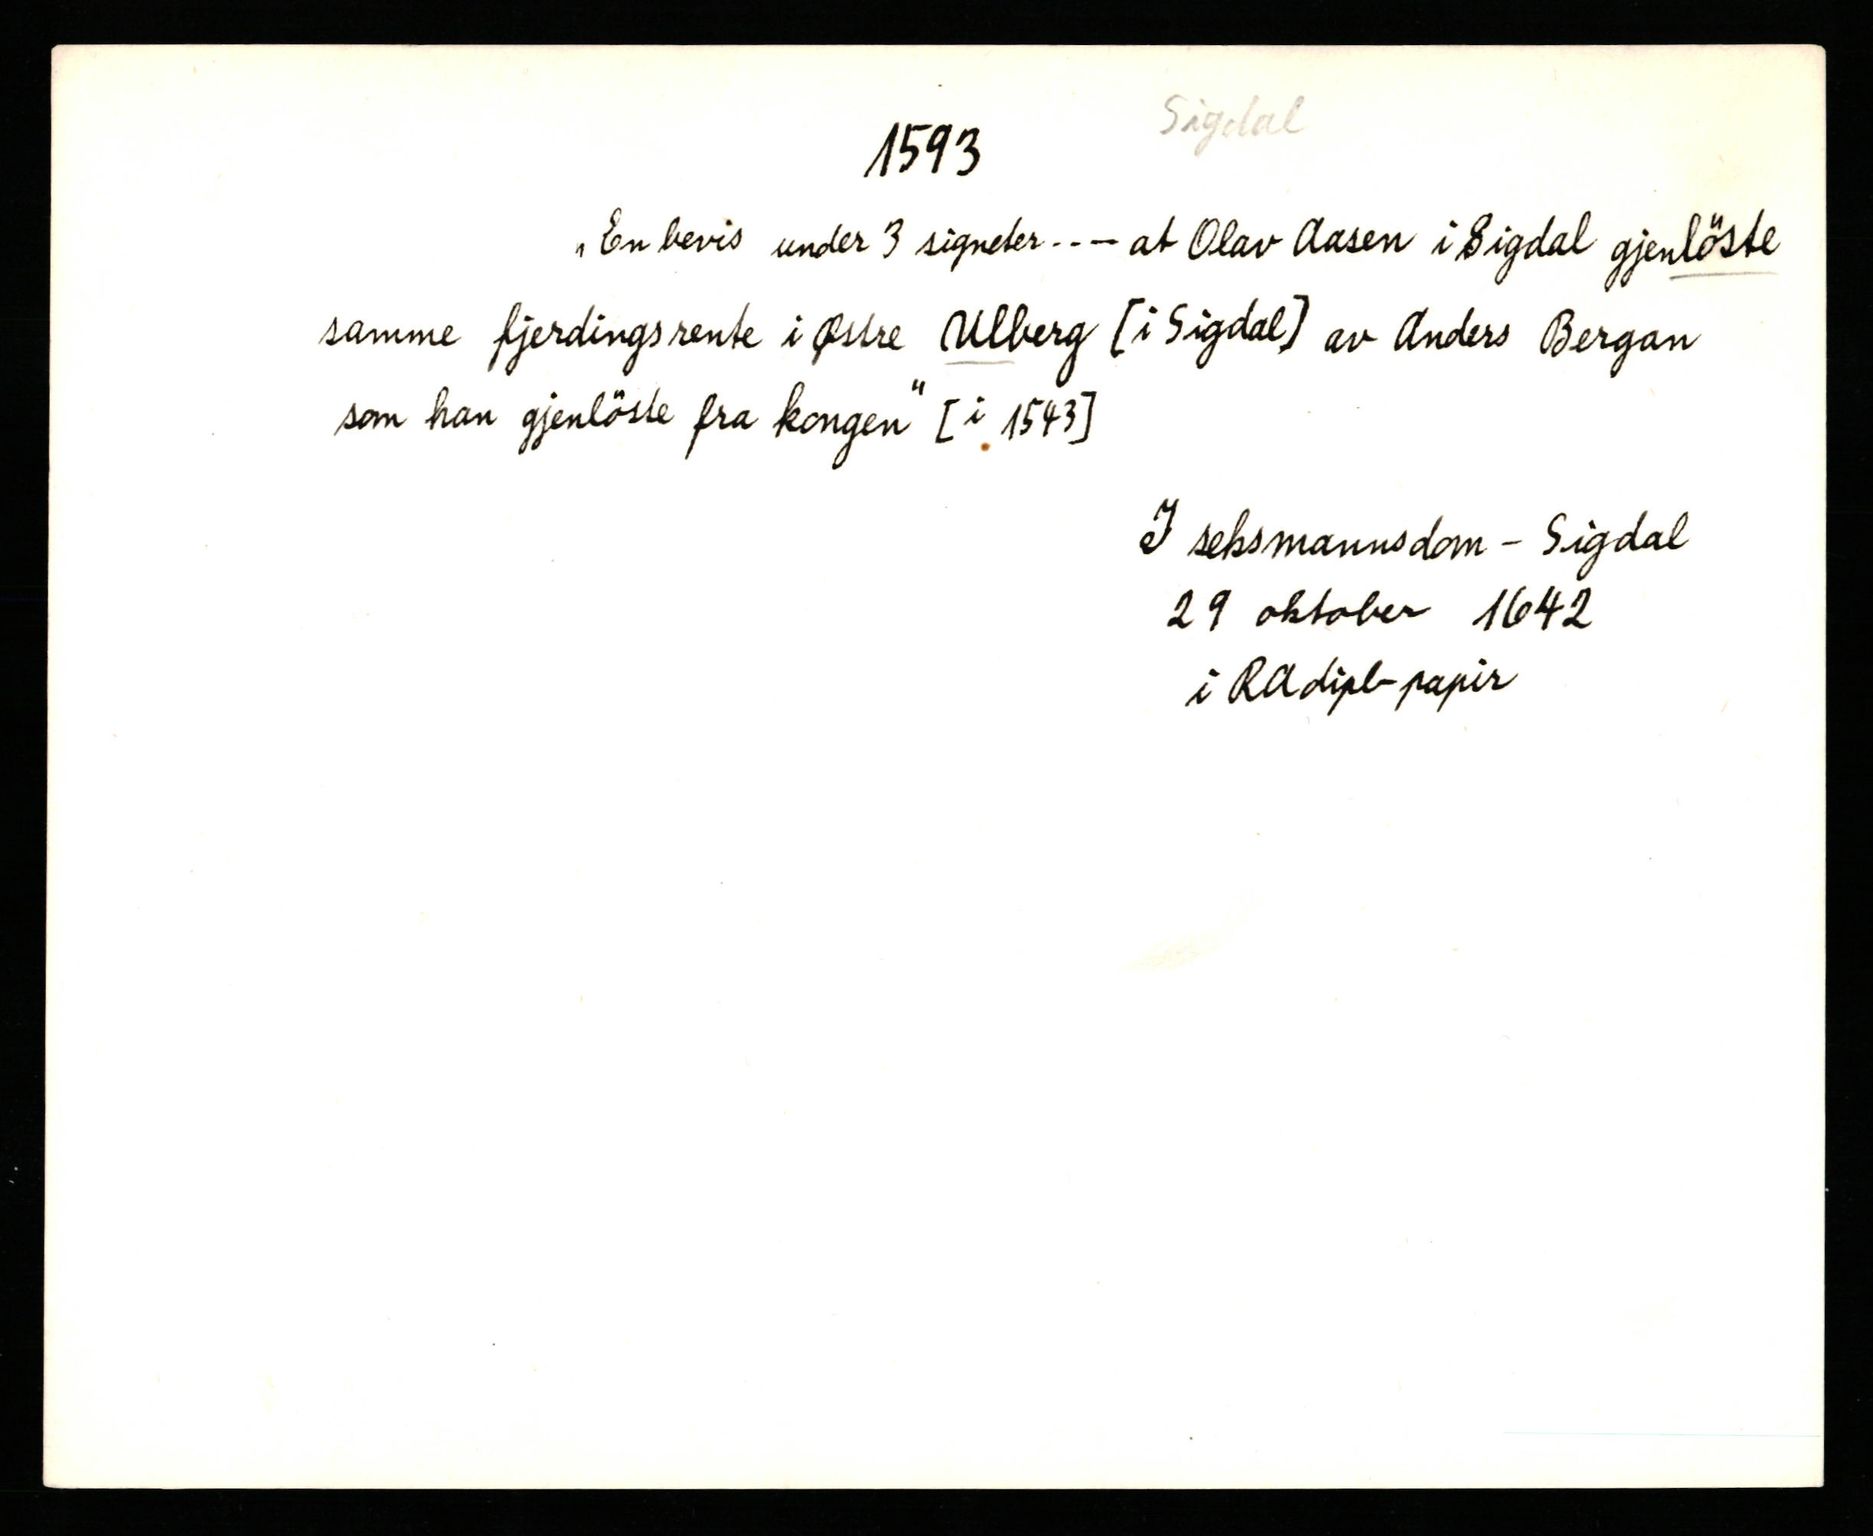 Sigdal
1593
„En bevis under 3 signeter --- at Olav Aasen i Sigdal gjenlöste
samme fjerdingsrente i Østre Ulberg [i Sigdal] av Anders Bergan
som han gjenlöste fra kongen" [i 1543]
I seksmannsdom - Sigdal
29 oktober 1642
i RA dipl-papir